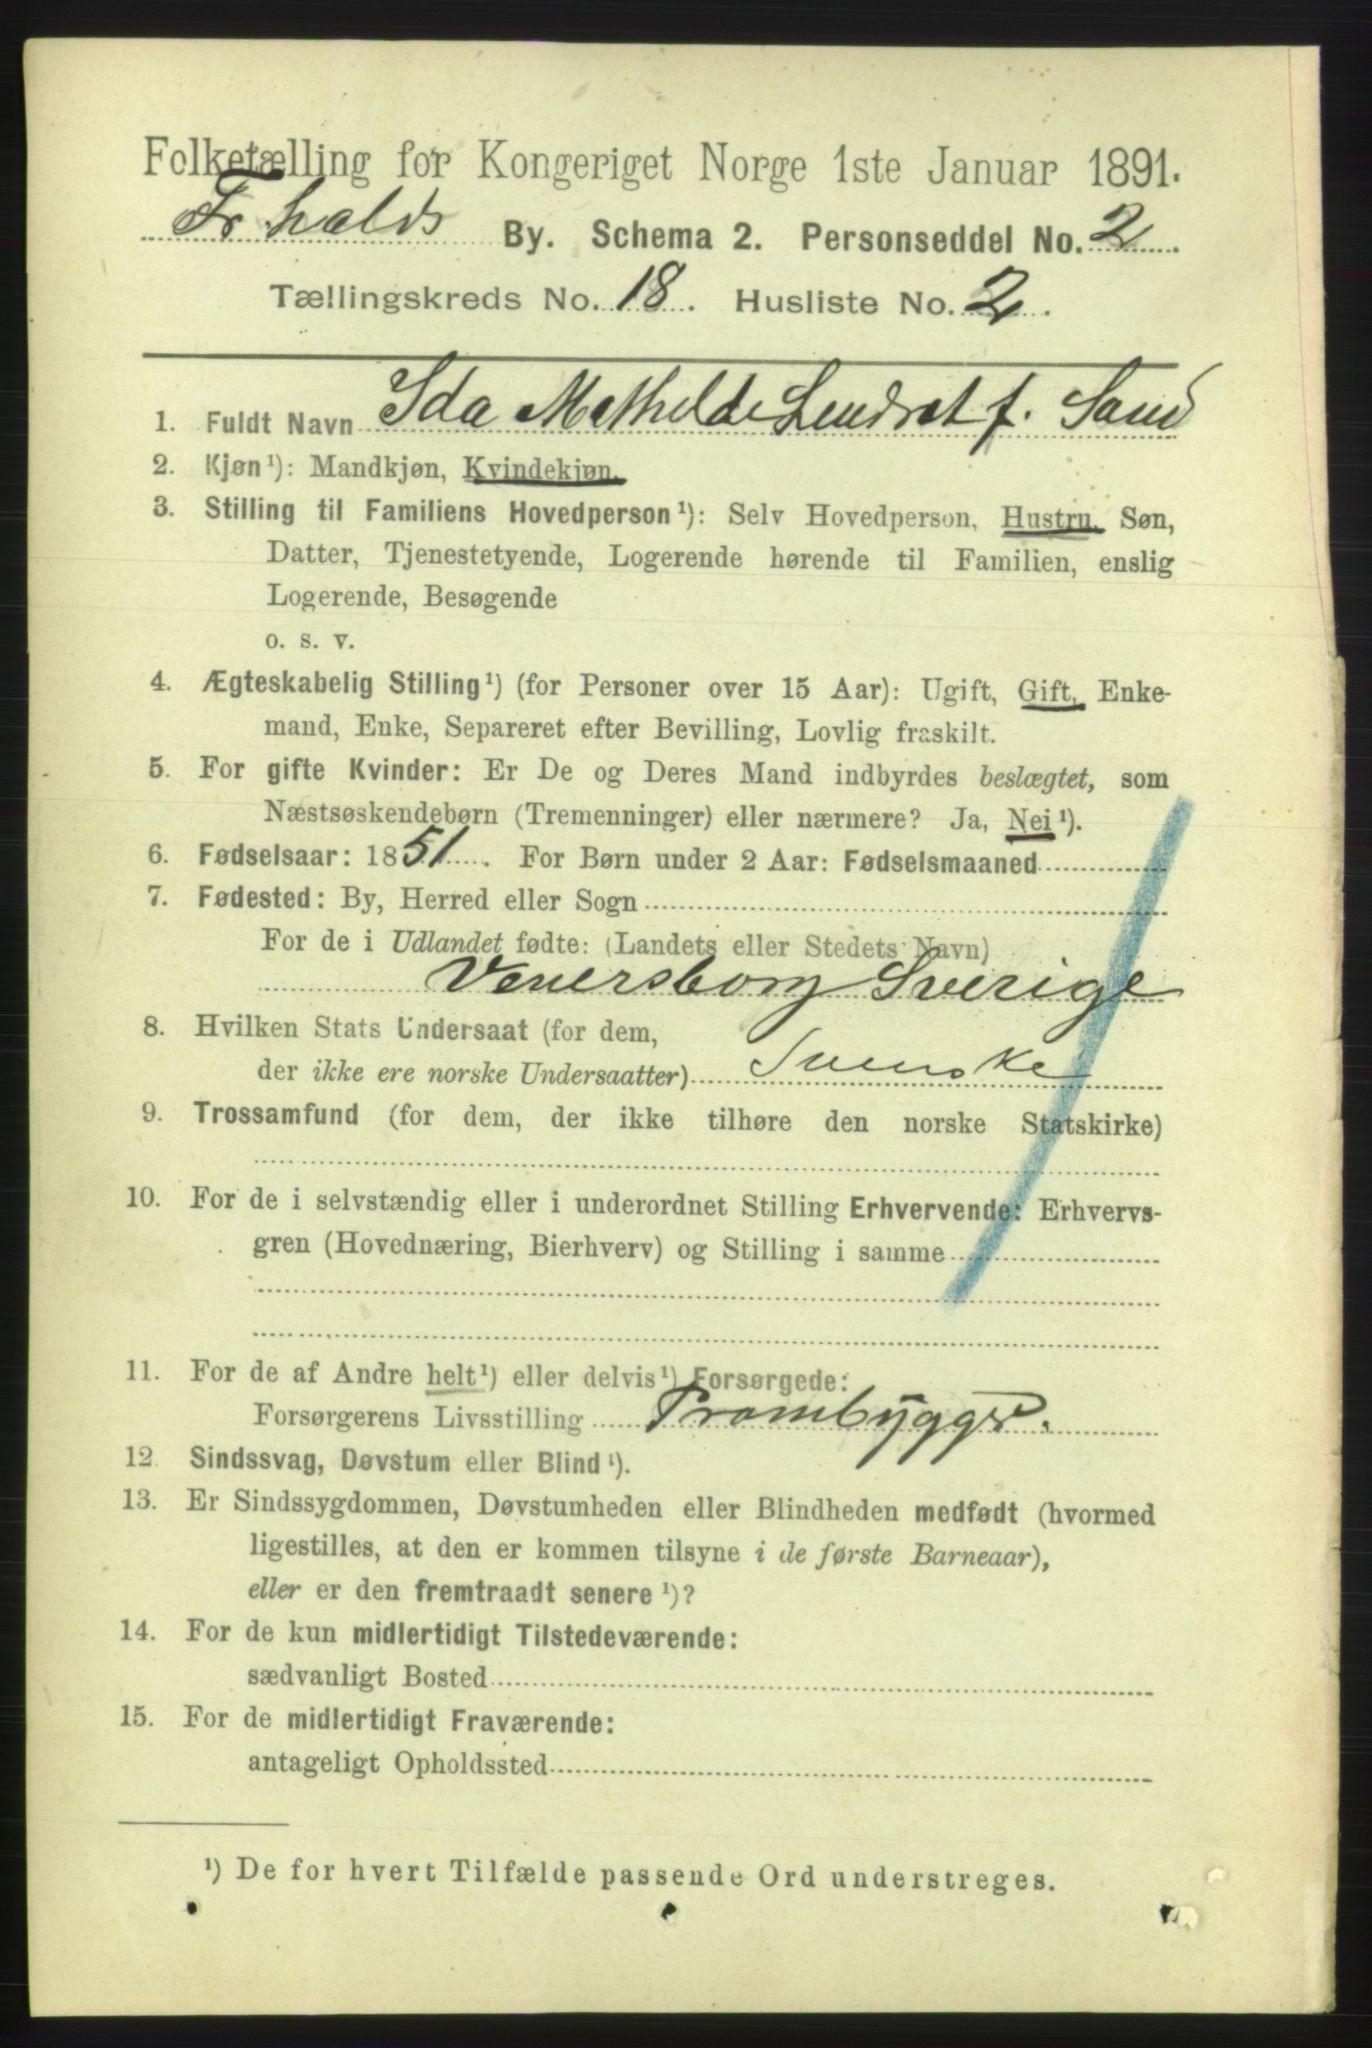 Folketælling for Kongeriget Norge 1ste Januar 1891.
Frhalds By. Schema 2. Personseddel No. 2.
Tællingskreds No. 18. Husliste No. 2.
1. Fuldt Navn Ida Mathilde f. Sand
2. Kjøn¹): Mandkjøn, Kvindekjøn.
3. Stilling til Familiens Hovedperson¹): Selv Hovedperson, Hustru, Søn,
Datter, Tjenestetyende, Logerende hørende til Familien, enslig
Logerende, Besøgende
o. s. v.
4. Ægteskabelig Stilling¹) (for Personer over 15 Aar): Ugift, Gift, Enke-
mand, Enke, Separeret efter Bevilling, Lovlig fraskilt.
5. For gifte Kvinder: Er De og Deres Mand indbyrdes beslægtet, som
Næstsøskendebørn (Tremenninger) eller nærmere? Ja, Nei¹).
6. Fødselsaar: 1851. For Børn under 2 Aar: Fødselsmaaned
7. Fødested: By, Herred eller Sogn
For de i Udlandet fødte: (Landets eller Stedets Navn)
Venersborg Sverige
8. Hvilken Stats Undersaat (for dem,
der ikke ere norske Undersaatter) Svenske
9. Trossamfund (for dem, der ikke tilhøre den norske Statskirke)
10. For de i selvstændig eller i underordnet Stilling Erhvervende: Erhvervs-
gren (Hovednæring, Bierhverv) og Stilling i samme
11. For de af Andre helt¹) eller delvis¹) Forsørgede:
Forsørgerens Livsstilling Prambygger.
12. Sindssvag, Døvstum eller Blind¹).
13. Er Sindssygdommen, Døvstumheden eller Blindheden medfødt (hvormed
ligestilles, at den er kommen tilsyne i de første Barneaar),
eller er den fremtraadt senere¹)?
14. For de kun midlertidigt Tilstedeværende:
sædvanligt Bosted
15. For de midlertidigt Fraværende:
antageligt Opholdssted
¹) De for hvert Tilfælde passende Ord understreges.